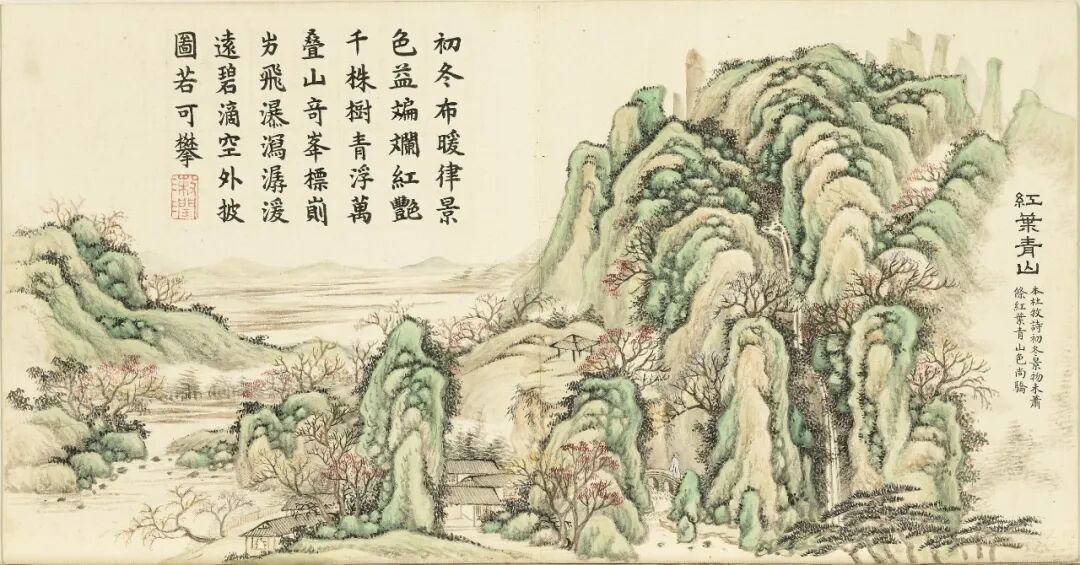 紅葉青山
本杜牧詩初冬景物未蕭
條紅葉青山色尚驕
初冬布暖律景
色益斒斕紅艷
千株樹青浮萬
叠山奇峯標崱
屴飛瀑瀉潺湲
遠碧滴空外披
圖若可攀